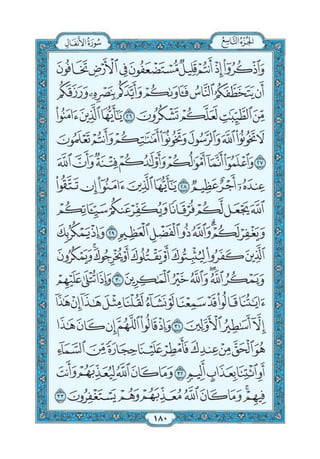 سُورَةُ الأَنفَالِ الجُزءُ التَّاسِعُ
وَٱذۡكُرُوٓاْ إِذۡ أَنتُمۡ قَلِيلٞ مُّسۡتَضۡعَفُونَ فِي ٱلۡأَرۡضِ تَخَافُونَ
أَن يَتَخَطَّفَكُمُ ٱلنَّاسُ فَـَٔاوَىٰكُمۡ وَأَيَّدَكُم بِنَصۡرِهِۦ وَرَزَقَكُم
مِّنَ ٱلطَّيِّبَٰتِ لَعَلَّكُمۡ تَشۡكُرُونَ ٢٦ يَٰٓأَيُّهَا ٱلَّذِينَ ءَامَنُواْ
لَا تَخُونُواْ ٱللَّهَ وَٱلرَّسُولَ وَتَخُونُوٓاْ أَمَٰنَٰتِكُمۡ وَأَنتُمۡ تَعۡلَمُونَ
٢٧ وَٱعۡلَمُوٓاْ أَنَّمَآ أَمۡوَٰلُكُمۡ وَأَوۡلَٰدُكُمۡ فِتۡنَةٞ وَأَنَّ ٱللَّهَ
عِندَهُۥٓ أَجۡرٌ عَظِيمٞ ٢٨ يَٰٓأَيُّهَا ٱلَّذِينَ ءَامَنُوٓاْ إِن تَتَّقُواْ
ٱللَّهَ يَجۡعَل لَّكُمۡ فُرۡقَانٗا وَيُكَفِّرۡ عَنكُمۡ سَيِّـَٔاتِكُمۡ
وَيَغۡفِرۡ لَكُمۡۗ وَٱللَّهُ ذُو ٱلۡفَضۡلِ ٱلۡعَظِيمِ ٢٩ وَإِذۡ يَمۡكُرُ بِكَ
ٱلَّذِينَ كَفَرُواْ لِيُثۡبِتُوكَ أَوۡ يَقۡتُلُوكَ أَوۡ يُخۡرِجُوكَۚ وَيَمۡكُرُونَ
وَيَمۡكُرُ ٱللَّهُۖ وَٱللَّهُ خَيۡرُ ٱلۡمَٰكِرِينَ ٣٠ وَإِذَا تُتۡلَىٰ عَلَيۡهِمۡ
ءَايَٰتُنَا قَالُواْ قَدۡ سَمِعۡنَا لَوۡ نَشَآءُ لَقُلۡنَا مِثۡلَ هَٰذَآ إِنۡ هَٰذَآ
إِلَّآ أَسَٰطِيرُ ٱلۡأَوَّلِينَ ٣١ وَإِذۡ قَالُواْ ٱللَّهُمَّ إِن كَانَ هَٰذَا
هُوَ ٱلۡحَقَّ مِنۡ عِندِكَ فَأَمۡطِرۡ عَلَيۡنَا حِجَارَةٗ مِّنَ ٱلسَّمَآءِ
أَوِ ٱئۡتِنَا بِعَذَابٍ أَلِيمٖ ٣٢ وَمَا كَانَ ٱللَّهُ لِيُعَذِّبَهُمۡ وَأَنتَ
فِيهِمۡۚ وَمَا كَانَ ٱللَّهُ مُعَذِّبَهُمۡ وَهُمۡ يَسۡتَغۡفِرُونَ ٣٣
١٨٠